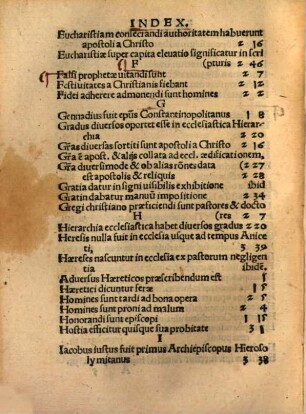 INDEX.
Eucharistiam consecrandi authoritatem habuerunt
apostoli a Christo 2 16
Eucharistiæ super capita eleuatio significatur in scri
F (pturis 2 46
Falsi prophetæ uitandi sunt 2 7
Festiuitates a Christianis fiebant 2 12
Fidei adherere admonendi sunt homines 2 2
G
Gennadius fuit epũs Constantinopolitanus 1 8
Gradus diuersos oportet esse in ecclesiastica Hierar
chia 2 20
Grãs diuersas sortiti sunt apostoli a Christo 2 16
Grã ẽ apost. & alijs collata ad eccl. ædificationem,
Grã diuersimode & ob alias rõnes data (2 27
est apostolis & reliquis 2 28
Gratia datur in signi uisibilis exhibitione ibid
Gratin dabatur manuũ impositione 2 34
Gregi christiano præficiendi sunt pastores & docto
H (res 2 7
Hierarchia ecclesiastica habet diuersos gradus 2 20
Heresis nulla fuit in ecclesia usque ad tempus Anice
ti, 3 39
Hæreses nascuntur in ecclesia ex pastorum negligen
tia ibidẽ.
Aduersus Hæreticos præscribendum est 1
Hæretici dicuntur feræ 1
Homines sunt tardi ad bona opera 2 5
Homines sunt proni ad malum 2 4
Honorandi sunt episcopi 1 15
Hostia efficitur quisque sua probitate 3 1
I
Iacobus iustus fuit primus Archiepiscopus Hieroso
lymitanus 3 38